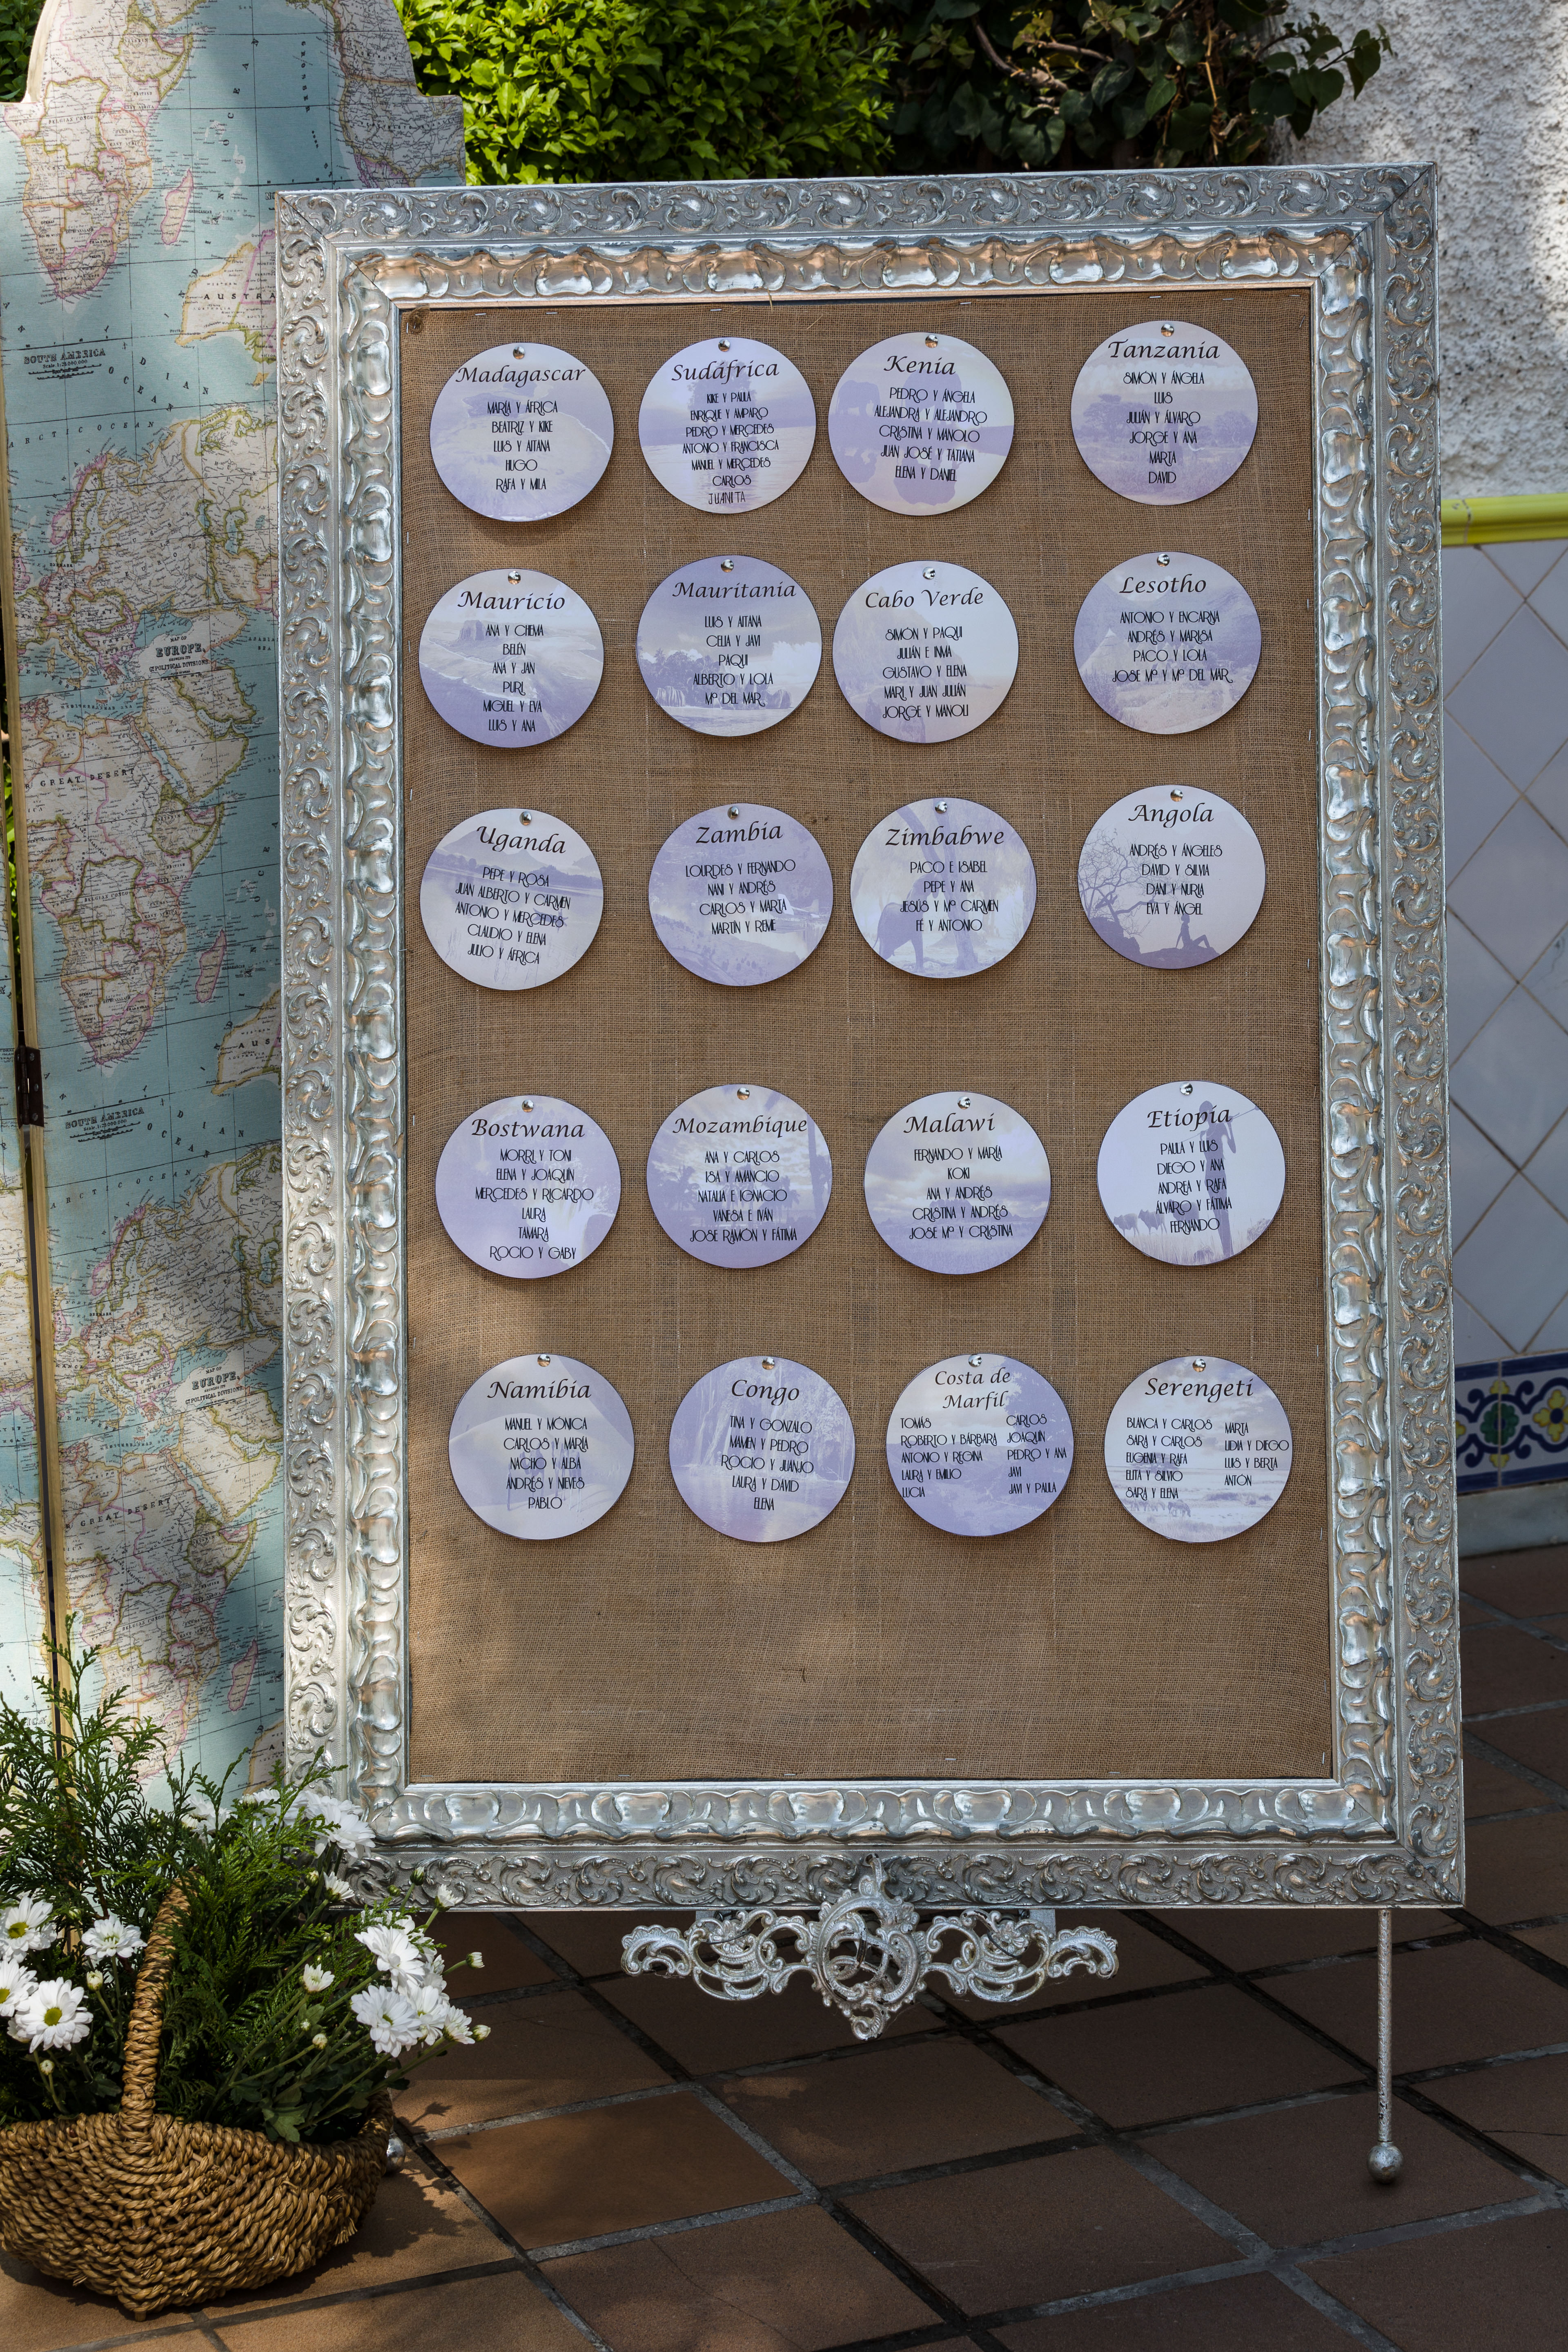 Madagascar
MARÍA Y ÁFRICA
BEATRIZ Y KIKE
LUIS Y AITANA
HUGO
RAFA Y MILA
Sudáfrica
KIKE Y PAULA
ENRIQUE Y AMPARO
PEDRO Y MERCEDES
ANTONIO Y FRANCISCA
MANUEL Y MERCEDES
CARLOS
JUANITA
Kenia
PEDRO Y ÁNGELA
ALEJANDRA Y ALEJANDRO
CRISTINA Y MANOLO
JUAN JOSÉ Y TATIANA
ELENA Y DANIEL
Tanzania
SIMÓN Y ÁNGELA
LUIS
JULIÁN Y ÁLVARO
JORGE Y ANA
MARTA
DAVID
Mauricio
ANA Y CHEMA
BELÉN
ANA Y JAN
PURI
MIGUEL Y EVA
LUIS Y ANA
Mauritania
LUIS Y AITANA
CELIA Y JAVI
PAQUI
ALBERTO Y LOLA
Mª DEL MAR
Cabo Verde
SIMÓN Y PAQUI
JULIÁN E INMA
GUSTAVO Y ELENA
MARI Y JUAN JULIÁN
JORGE Y MANOLI
Lesotho
ANTONIO Y ENCARNA
ANDRÉS Y MARISA
PACO Y LOLA
JOSE Mª Y Mª DEL MAR
Uganda
PEPE Y ROSA
JUAN ALBERTO Y CARMEN
ANTONIO Y MERCEDES
CLAUDIO Y ELENA
JULIO Y ÁFRICA
Zambia
LOURDES Y FERNANDO
NANI Y ANDRÉS
CARLOS Y MARTA
MARTÍN Y REME
Zimbabwe
PACO E ISABEL
PEPE Y ANA
JESÚS Y Mª CARMEN
FÉ Y ANTONIO
Angola
ANDRÉS Y ÁNGELES
DAVID Y SILVIA
DANI Y NURIA
EVA Y ÁNGEL
Bostwana
MORRI Y TONI
ELENA Y JOAQUÍN
MERCEDES Y RICARDO
LAURA
TAMARA
ROCIO Y GABY
Mozambique
ANA Y CARLOS
ISA Y AMANCIO
NATALIA E IGNACIO
VANESA E IVÁN
JOSE RAMÓN Y FÁTIMA
Malawi
FERNANDO Y MARÍA
KOKI
ANA Y ANDRÉS
CRISTINA Y ANDRÉS
JOSE Mª Y CRISTINA
Etiopia
PAULA Y LUIS
DIEGO Y ANA
ANDREA Y RAFA
ÁLVARO Y FÁTIMA
FERNANDO
Namibia
MANUEL Y MÓNICA
CARLOS Y MARÍA
NACHO Y ALBA
ANDRÉS Y NIEVES
PABLO
Congo
TINA Y GONZALO
MAMEN Y PEDRO
ROCIO Y JUANJO
LAURA Y DAVID
ELENA
Costa de
Marfil
TOMÁS
ROBERTO Y BÁRBARA
ANTONIO Y REGINA
LAURA Y EMILIO
LUCIA
CARLOS
JOAQUIN
PEDRO Y ANA
JAVI
JAVI Y PAULA
Serengeti
BLANCA Y CARLOS
SARA Y CARLOS
EUGENIA Y RAFA
ELITA Y SILVIO
SARA Y ELENA
MARTA
LIDIA Y DIEGO
LUIS Y BERTA
ANTON
SOUTH AMERICA
AUSTRA
ARCTIC OCEAN
MAP OF
EUROPE
POLITICAL DIVISIONS
GREAT DESERT
AUS
SOUTH AMERICA
ARCTIC OCEAN
MAP OF
EUROPE,
POLITICAL DIVISIONS
GREAT DESERT